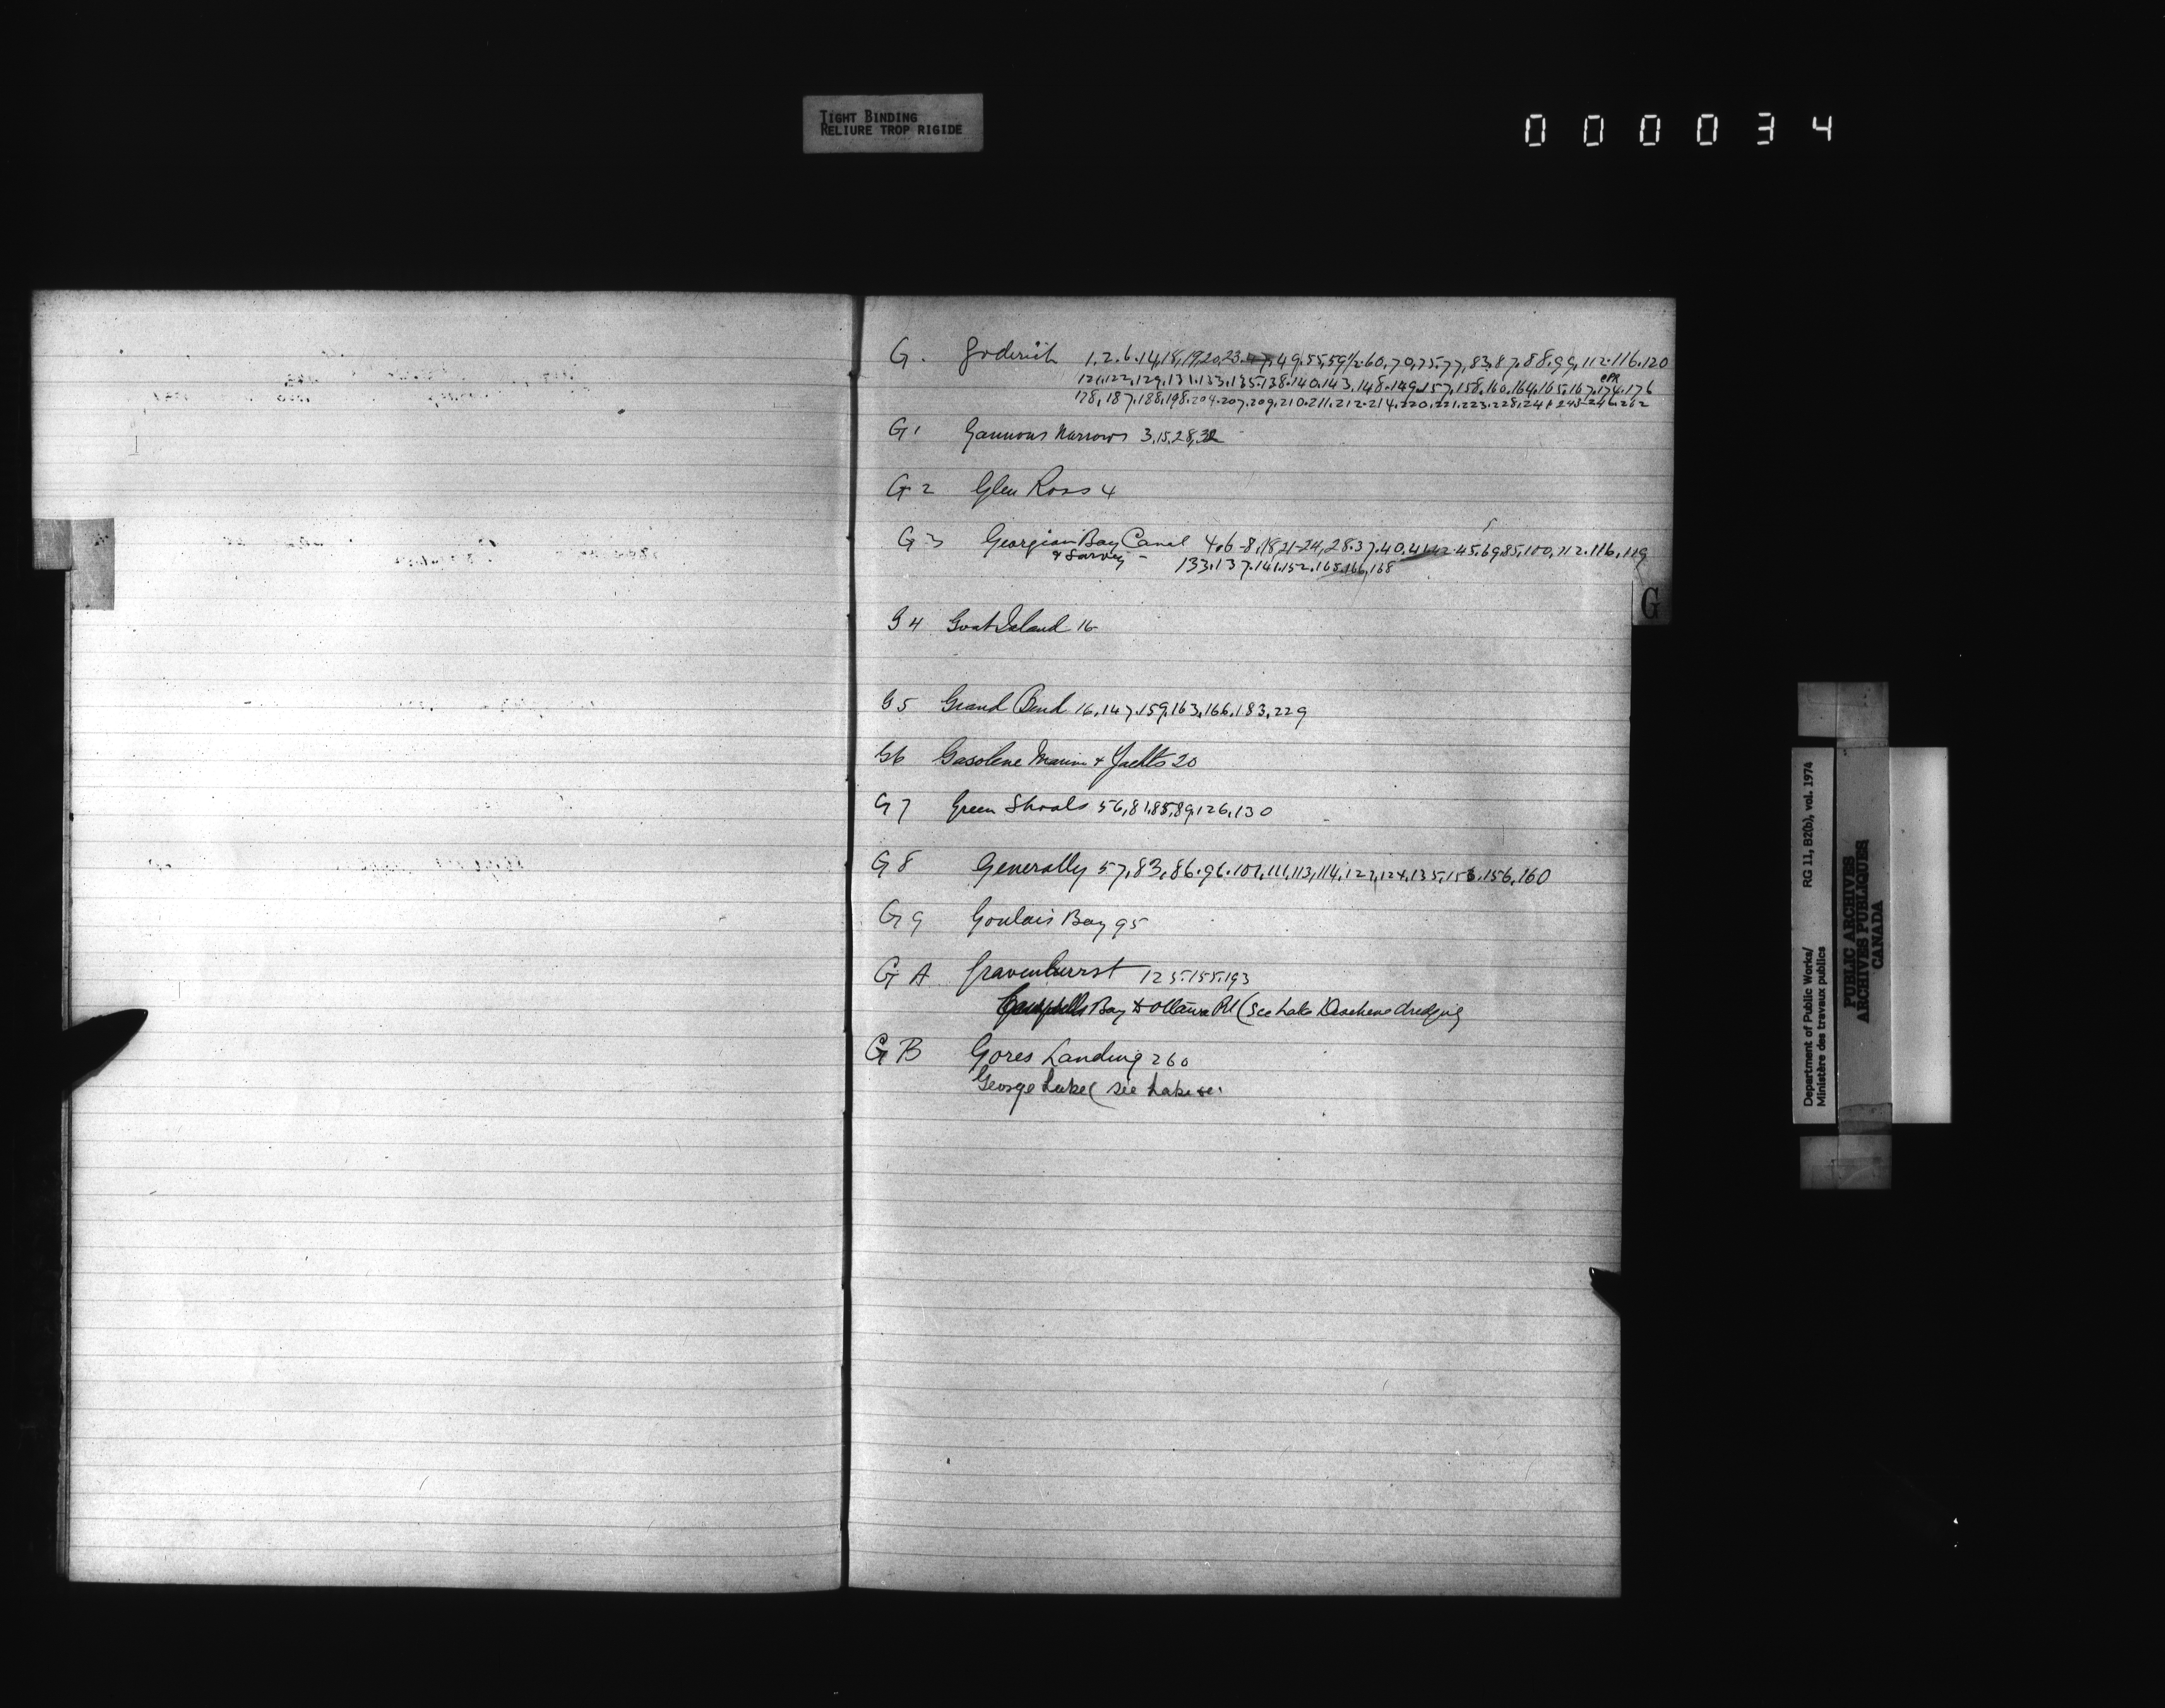 TIGHT BINDING
RELIURE TROP RIGIDE
000034
G. Goderich 1.2.6.14,18,19,20,23.47,49,55,59½.60,70,75.77,83,87.88.99,112.116.120
121,122,129,131.133.135.138.140.143.148.149.157,158,160,164,165,167,174.176
178,187.188,198.204.207.209,210.211.212.214.220,221.223.228.241 243 246.262
G1 Gannons Narrows 3,15,28,32
G2 Glen Ross 4
G3 Georgian Bay Canal 4.6-8,18,21-24,28.37.40.41.42.45.69,85,100,112.116,119
& Survey - 133.137.141.152.165.166,168
G4 Goat Island 16
G5 Grand Bend 16,147.159,163,166,183,229
G6 Gasolene Marine & Yachts 20
G7 Green Shoals 56,81,85,89,126,130
G8 Generally 57,83,86.96.101,111,113,114,122,124,135,153,156,160
G9 Goulais Bay 95
GA Gravenhurst 125.155.193
Campbells Bay & Ottawa Rd (See Lake Deschene dredging
GB Gores Landing 260
George Lake (see Lake
G
Department of Public Works/
Ministère des travaux publics
RG 11, B2(b), vol. 1974
PUBLIC ARCHIVES
ARCHIVES PUBLIQUES
CANADA